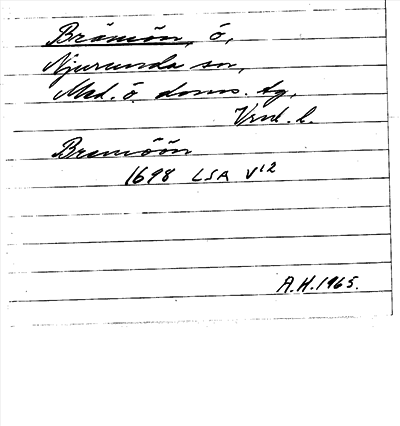 Brämön, ö,
Njurunda sn,
Med. ö. doms. tg,
Vnl. l.
Bremöön
1698 LSA V12
A.H. 1965.